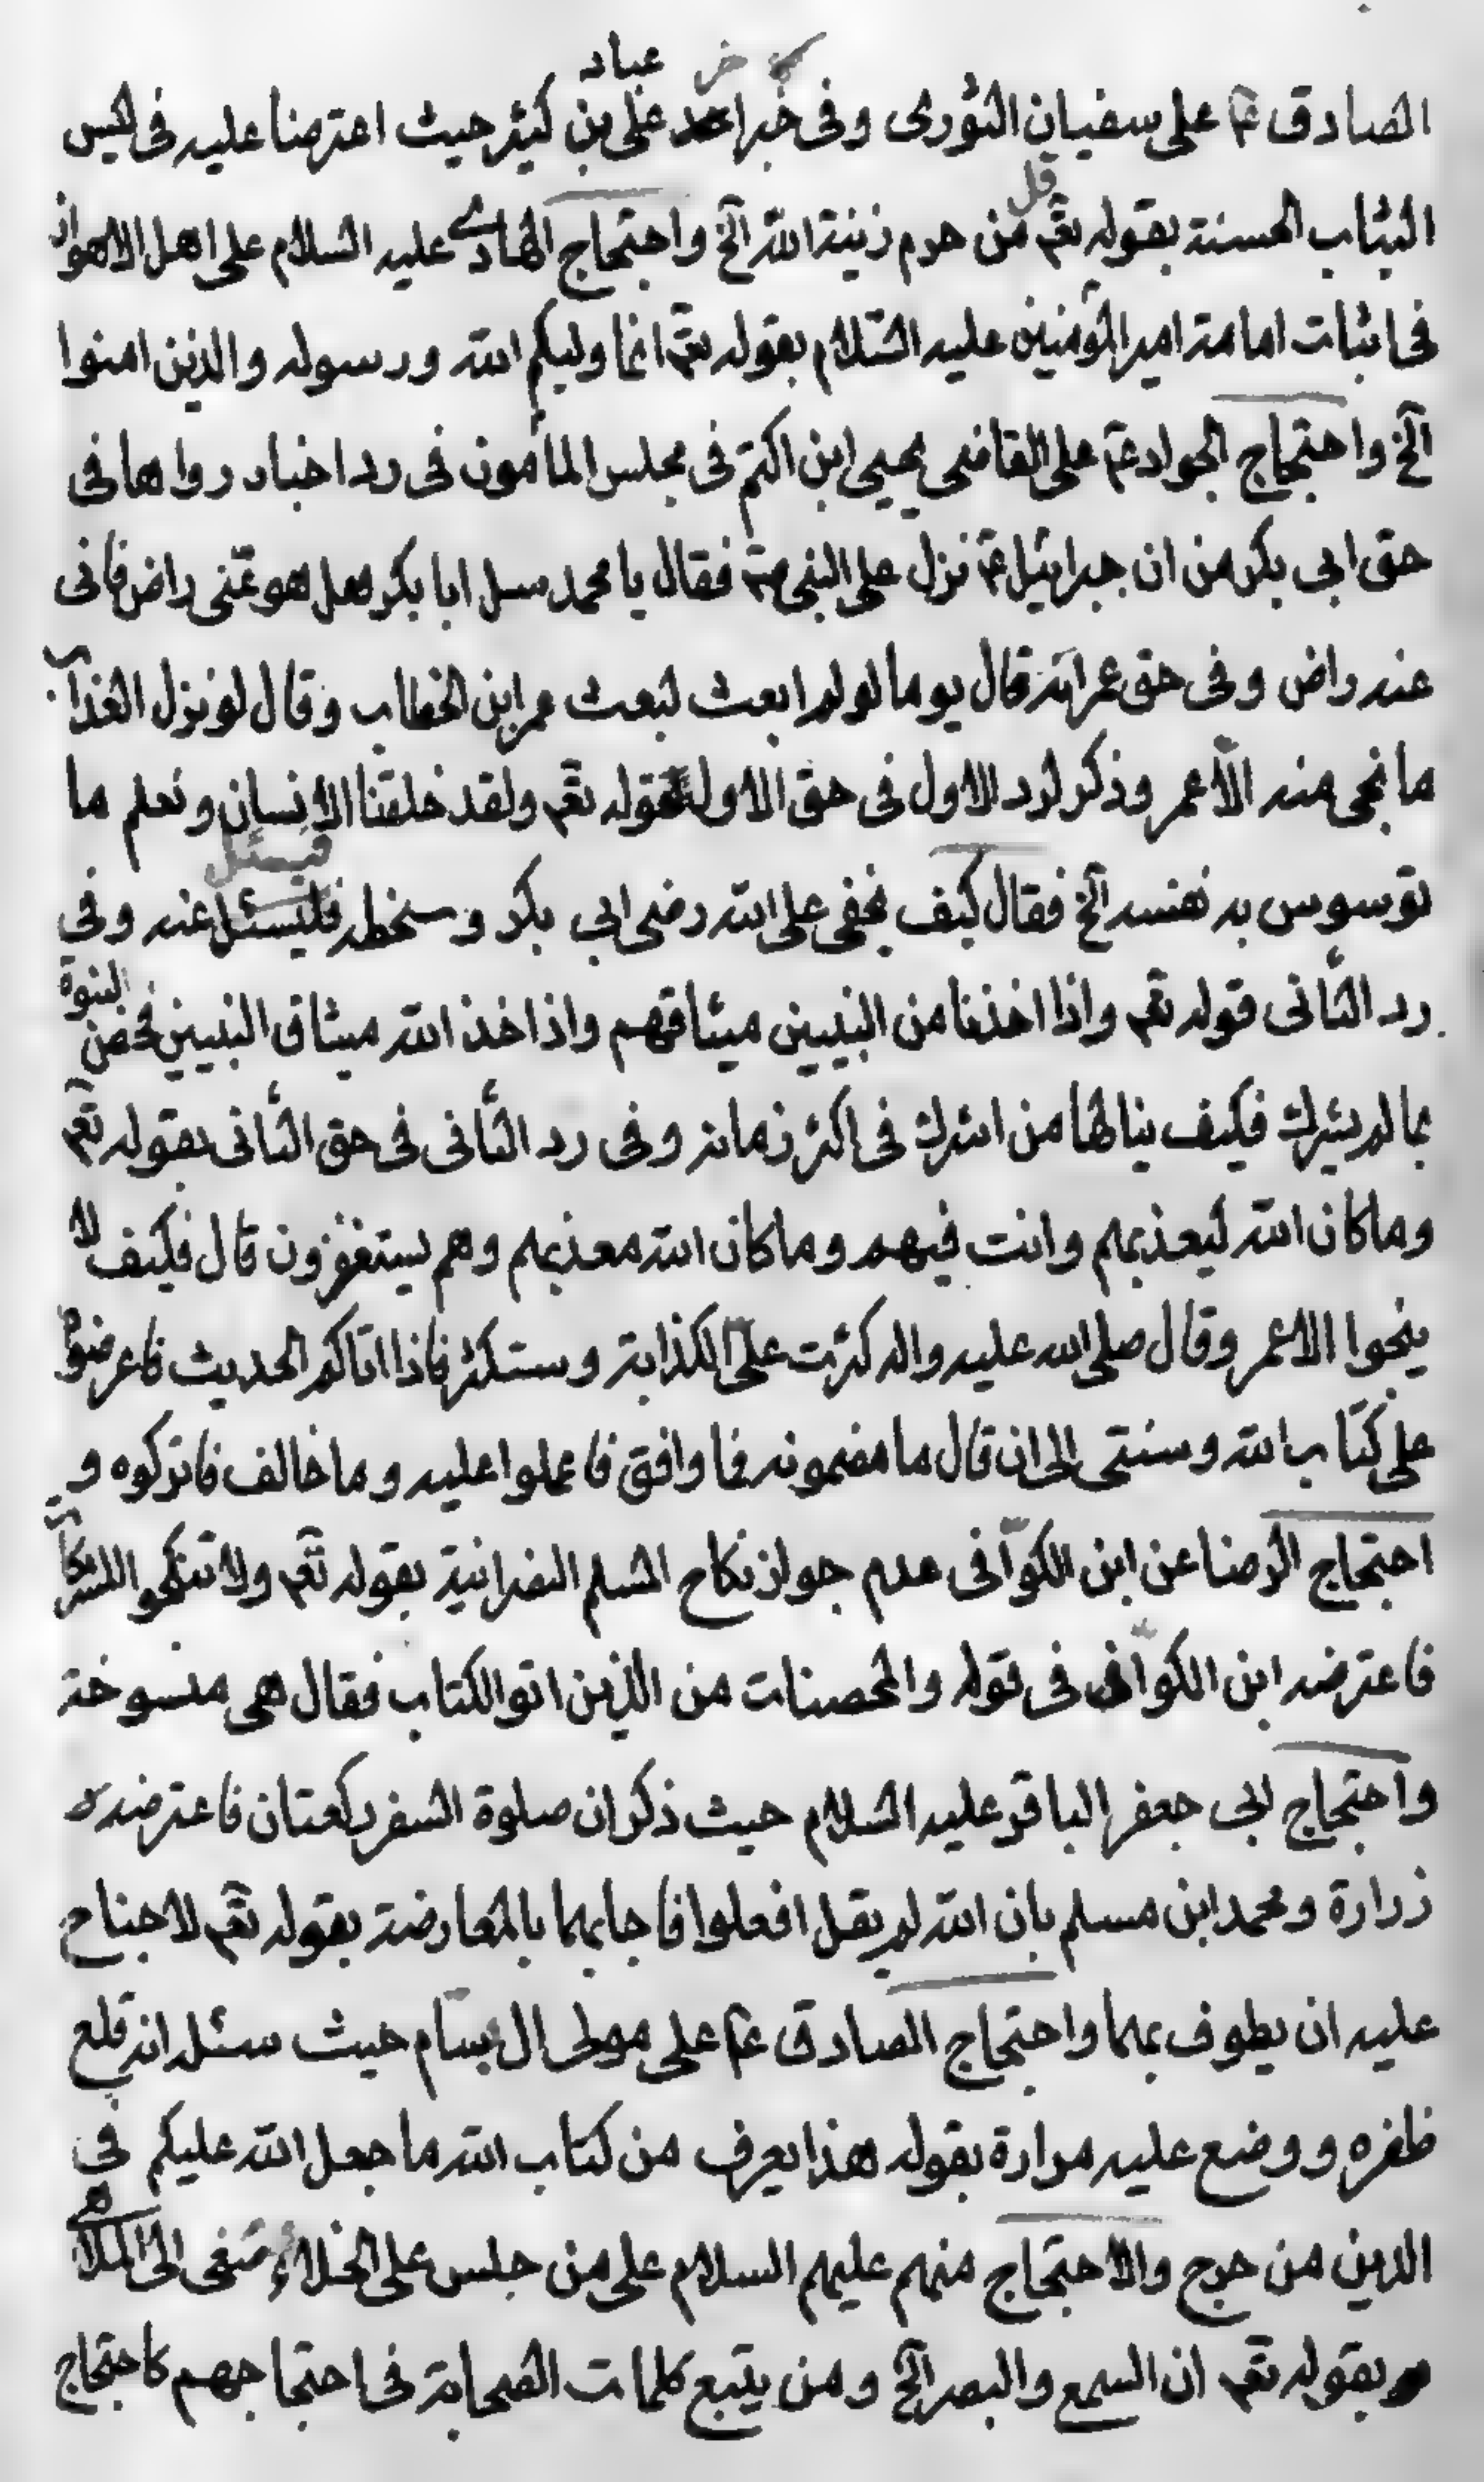 عباد
الصادق ع على سفيان الثورى وفى خبر اخر على بن كثير حيث اعترضا عليه فى لبس
الثياب الحسنة بقوله تع قل من حرم زينة الله الخ واحتجاج الهادى عليه السلام على اهل الاهواز
فى اثبات امامة امير المؤمنين عليه السّلام بقوله تع انما وليكم الله ورسوله والذين امنوا
الخ واحتجاج الجواد ع على القاضى يحيى ابن اكثم فى مجلس المأمون فى رد اخبار رواها فى
حق ابى بكر من ان جبرائيل ع نزل على النبى ص فقال يا محمد سل ابا بكر هل هو عنى راض فانى
عنه راض وفى حق عمر انه قال يوما لو لم ابعث لبعث عمر ابن الخطاب وقال لو نزل العذاب
ما نجى منه الا عمر وذكر لرد الاول فى حق الاول بقوله تع ولقد خلقنا الانسان ونعلم ما
توسوس به نفسه الخ فقال كيف يخفى على الله رضى ابى بكر وسخطه فليسئل فيسئل عنه وفى
رد الثانى قوله تع واذا اخذنا من النبيين ميثاقهم واذ اخذ الله ميثاق النبيين فخص النبوة
بما لم يشرك فكيف ينالها من اشرك فى اكثر زمانه وفى رد الثانى فى حق الثانى بقوله تع
وما كان الله ليعذبهم وانت فيهم وما كان الله معذبهم وهم يستغفرون قال فكيف لا
ينجوا الا عمر وقال صلى الله عليه واله كثرت علىّ الكذابة وستكثر فاذا اتاكم الحديث فاعرضوه
على كتاب الله وسنتى الى ان قال ما مضمونه فما وافق فاعملوا عليه وما خالف فاتركوه و
احتجاج الرضا عن ابن الكوّا فى عدم جواز نكاح المسلم النصرانية بقوله تع ولا تنكحوا المشركات
فاعترضه ابن الكوّا فى قوله والمحصنات من الذين اتوا الكتاب فقال هى منسوخة
واحتجاج ابى جعفر الباقر عليه السّلام حيث ذكر ان صلوة السفر ركعتان فاعترضه
زرارة ومحمد ابن مسلم بان الله لم يقل افعلوا فاجابهما بالمعارضة بقوله تع لا جناح
عليه ان يطوف بهما واحتجاج الصادق ع على مولى ال بسّام حيث سئل انه قلع
ظفره ووضع عليه مرارة بقوله هذا يعرف من كتاب الله ما جعل الله عليكم فى
الدين من حرج والاحتجاج منهم عليهم السلام على من جلس على الخلاء يتنحى الى الملاهى
بقوله تع ان السمع والبصر الخ ومن يتبع كلمات الصحابة فى احتجاجهم كاحتجاج